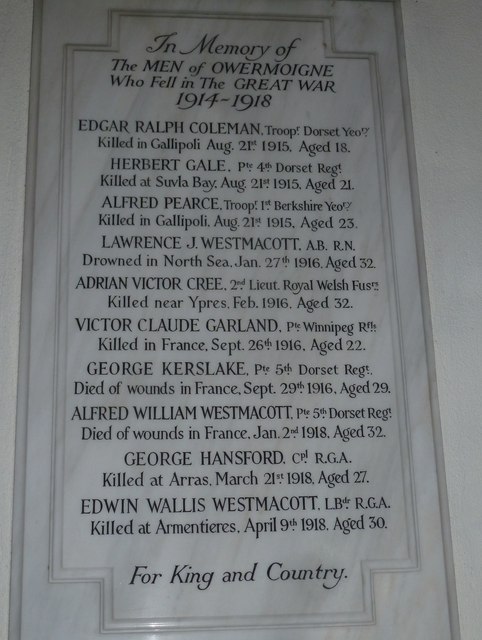 In Memory of
The MEN of OWERMOIGNE
Who Fell in The GREAT WAR
1914-1918
EDGAR RALPH COLEMAN, Troopr. Dorset Yeory.
Killed in Gallipoli Aug. 21st 1915. Aged 18.
HERBERT GALE, Pte 4th Dorset Regt.
Killed at Suvla Bay, Aug. 21st 1915. Aged 21.
ALFRED PEARCE, Troopr. 1st Berkshire Yeory.
Killed in Gallipoli, Aug. 21st 1915, Aged 23.
LAWRENCE J. WESTMACOTT, A.B. R.N.
Drowned in North Sea, Jan. 27th 1916, Aged 32.
ADRIAN VICTOR CREE, 2nd Lieut. Royal Welsh Fusrs.
Killed near Ypres, Feb. 1916, Aged 32.
VICTOR CLAUDE GARLAND, Pte Winnipeg Rfls.
Killed in France, Sept. 26th 1916, Aged 22.
GEORGE KERSLAKE, Pte 5th Dorset Regt.
Died of wounds in France, Sept. 29th 1916, Aged 29.
ALFRED WILLIAM WESTMACOTT, Pte 5th Dorset Regt.
Died of wounds in France, Jan. 2nd 1918, Aged 32.
GEORGE HANSFORD, Cpl R.G.A.
Killed at Arras, March 21st 1918, Aged 27.
EDWIN WALLIS WESTMACOTT, L.Bdr. R.G.A.
Killed at Armentieres, April 9th 1918. Aged 30.
For King and Country.